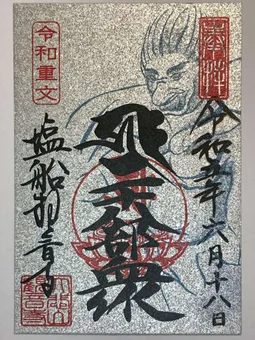 奉拝
令和五年六月十八日
二十八部衆
令和重文
塩船観音寺